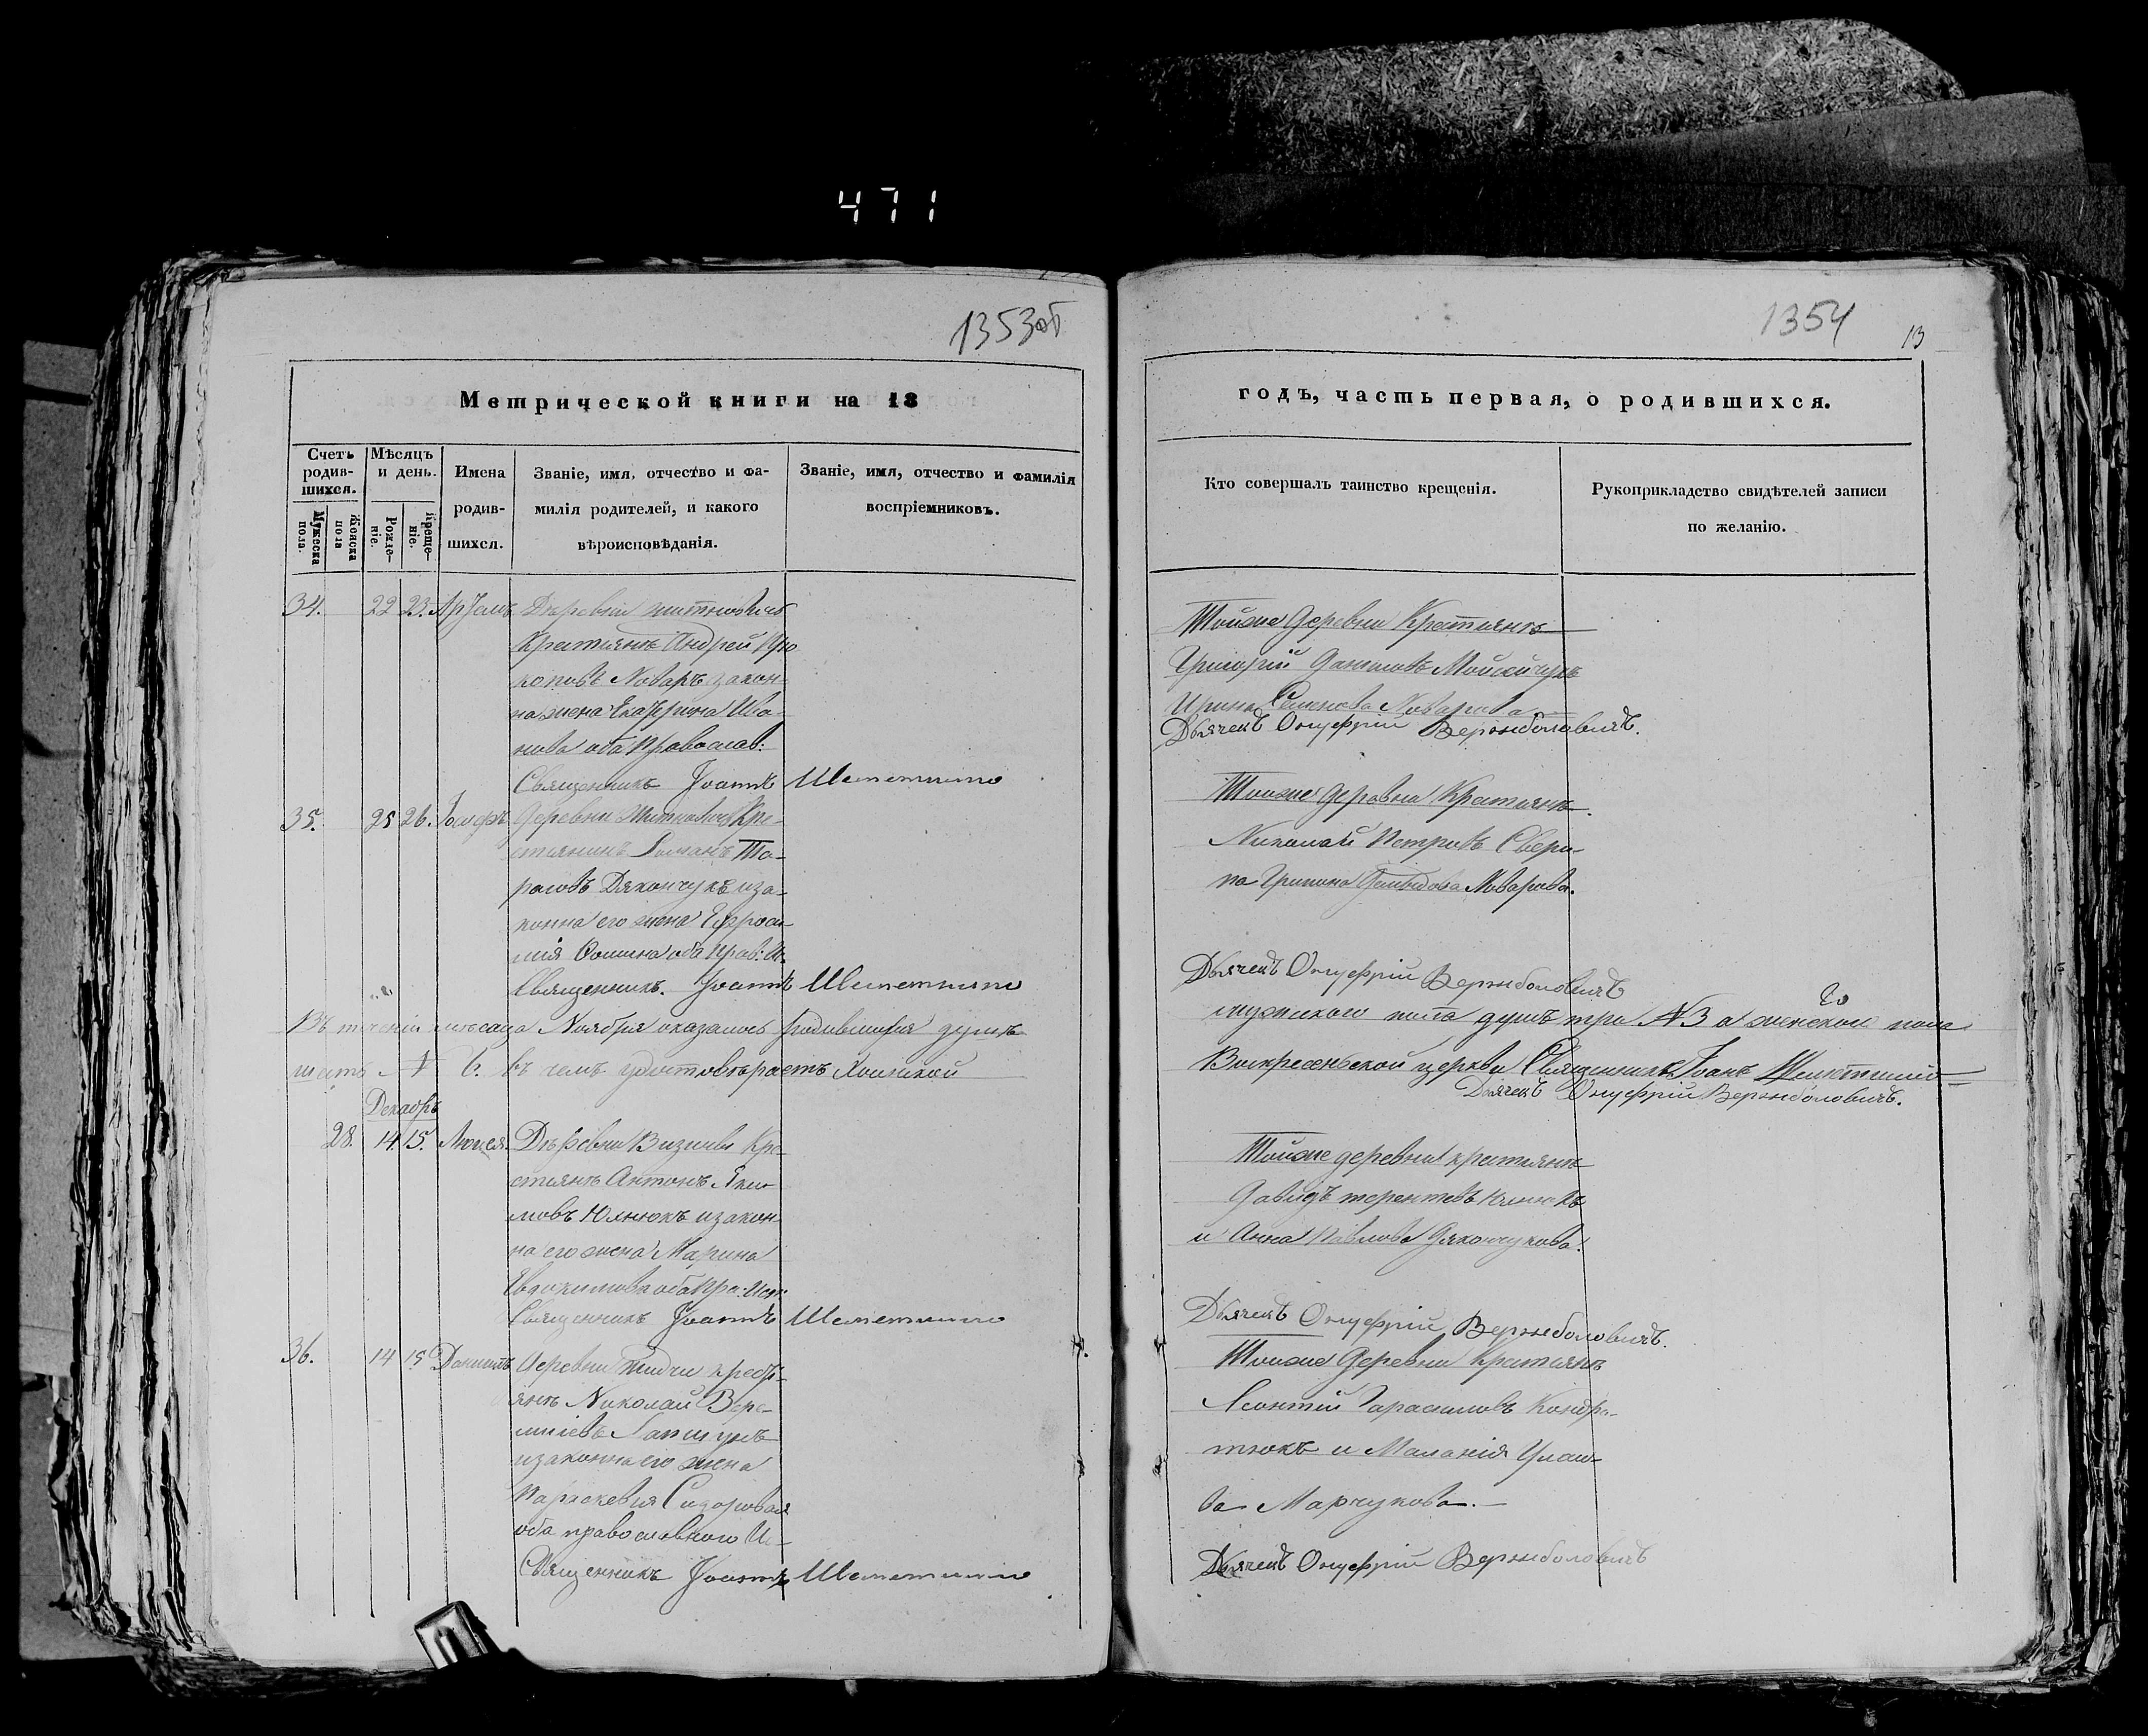 471
1353об
Метрической книги на 18
Счетъ родившихся.
Мужеска пола.
Женска пола
Мѣсяцъ и день.
Рожденіе.
Крещеніе.
Имена родившихся.
Званіе, имя, отчество и фамилія родителей, и какого вѣроисповѣданія.
Званіе, имя, отчество и фамилія воспріемниковъ.
34. 22 23. Артемъ Деревни
Крестьянъ Андрей Про
коповъ Коваръ закон
на жена Екатерина Ива
нова оба Православ:
Священникъ Іоаннъ Шеметилло
35. 25 26. Іосифъ Деревни Кре-
стьянинъ Романъ Та-
расовъ Дякончукъ иза-
конна его жена Ефроси
нія Фомина оба Прав: И.
Священникъ. Іоаннъ Шеметилло
Въ теченіи мѣсаца Ноября оказалось родившихся душъ
шесть № 6. въ чемъ удостовѣраетъ
Декабръ
28. 14. 15. Деревни Кре
стьянъ Антонъ Яки
мовъ Юлнюкъ изакон
на его жена Марина
Евдокимова оба Пра: Исп.
Священникъ Іоаннъ Шеметилло
36. 14 15 Даниилъ Деревни Жидчи крест-
янъ Николай Вере-
миіевъ
изаконна его жена
Параскевія Сидоровая
оба православного И-
Священникъ Іоаннъ Шеметилло
1354
13
годъ, часть первая, о родившихся.
Кто совершалъ таинство крещенія.
Рукоприкладство свидѣтелей записи по желанію.
Тойже Деревни Крестьянъ
Григорій Даниловъ Мойсейчукъ
Ирина Семенова Коварова
Дьячекъ Онуфрій Вержболовичъ.
Тойже деревни Крестьянъ.
Николай Петровъ Свери-
па Грипина Коварова.
Дьячекъ Онуфрій Вержболовичъ
мужскаго пола душъ три № 3 а женского пола
Воскресенской церкви Священникъ Іоанъ Шеметилло
Дьячекъ Онуфрій Вержболовичъ.
Тойже деревни крестьянъ
Давидъ терентевъ Юлнюкъ
и Анна Павлова Дякончукова.
Дьячекъ Онуфрій Вержболовичъ.
Тойже Деревни Крестьянъ
Леонтій Гарасимовъ Кондра-
тюкъ и Маланія Улан-
ва Марчукова.
Дьячекъ Онуфрій Вержболовичъ